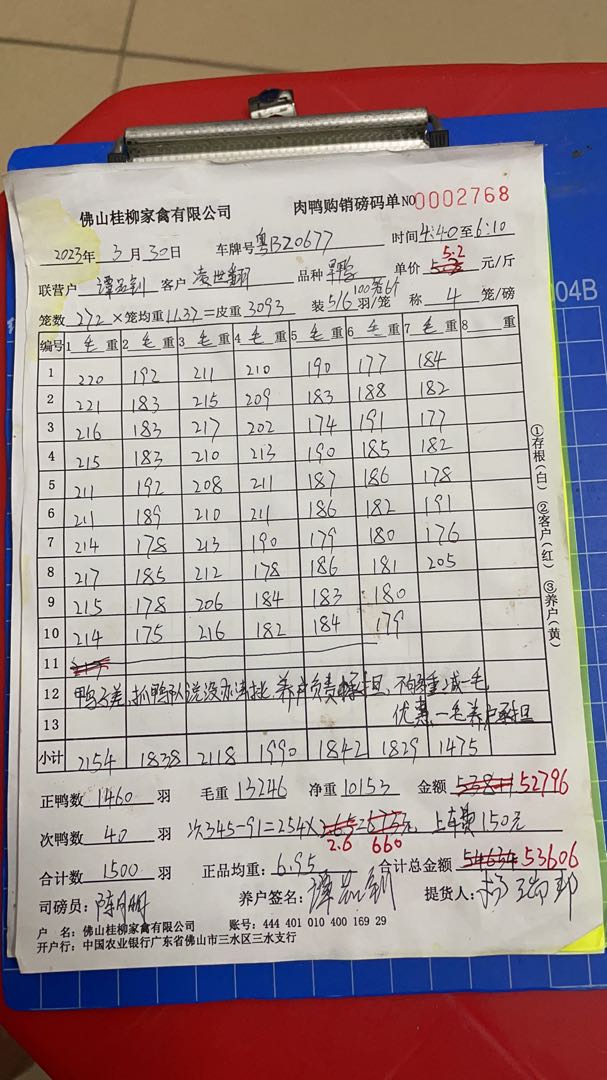 佛山桂柳家禽有限公司 肉鸭购销磅码单 NO 0002768
2023年 3月 30日 车牌号 粤BZ0677 时间 4:40 至 6:10
联营户 客户 凌世翻 品种 单价 5.2 元/斤
笼数 272 × 笼均重 11.37 = 皮重 3093 装 5/6 羽/笼 称 4 笼/磅
编号 1 毛 重 2 毛 重 3 毛 重 4 毛 重 5 毛 重 6 毛 重 7 毛 重 8 重
1 220 192 211 210 190 177 184
2 221 183 215 209 183 188 182
3 216 183 217 202 174 191 177
4 215 183 210 213 190 185 182
5 211 192 208 211 187 186 178
6 211 189 210 211 186 182 191
7 214 178 213 190 179 180 176
8 217 185 212 178 186 181 205
9 215 178 206 184 183 180
10 214 175 216 182 184 179
11
12 鸭子差、抓鸭队说没办法挑、养户负责承担、不够重减一毛
13 优惠一毛养户承担
小计 2154 1838 2118 1990 1842 1829 1475
正鸭数 1460 羽 毛重 13246 净重 10153 金额 52796
次鸭数 40 羽 次345-91=254× 2.6 = 660 元 上车费150元
合计数 1500 羽 正品均重: 6.95 合计总金额 53606
司磅员: 养户签名: 提货人:
户 名: 佛山桂柳家禽有限公司 账号: 444 401 010 400 169 29
开户行: 中国农业银行广东省佛山市三水区三水支行
①存根(白) ②客户(红) ③养户(黄)
04B